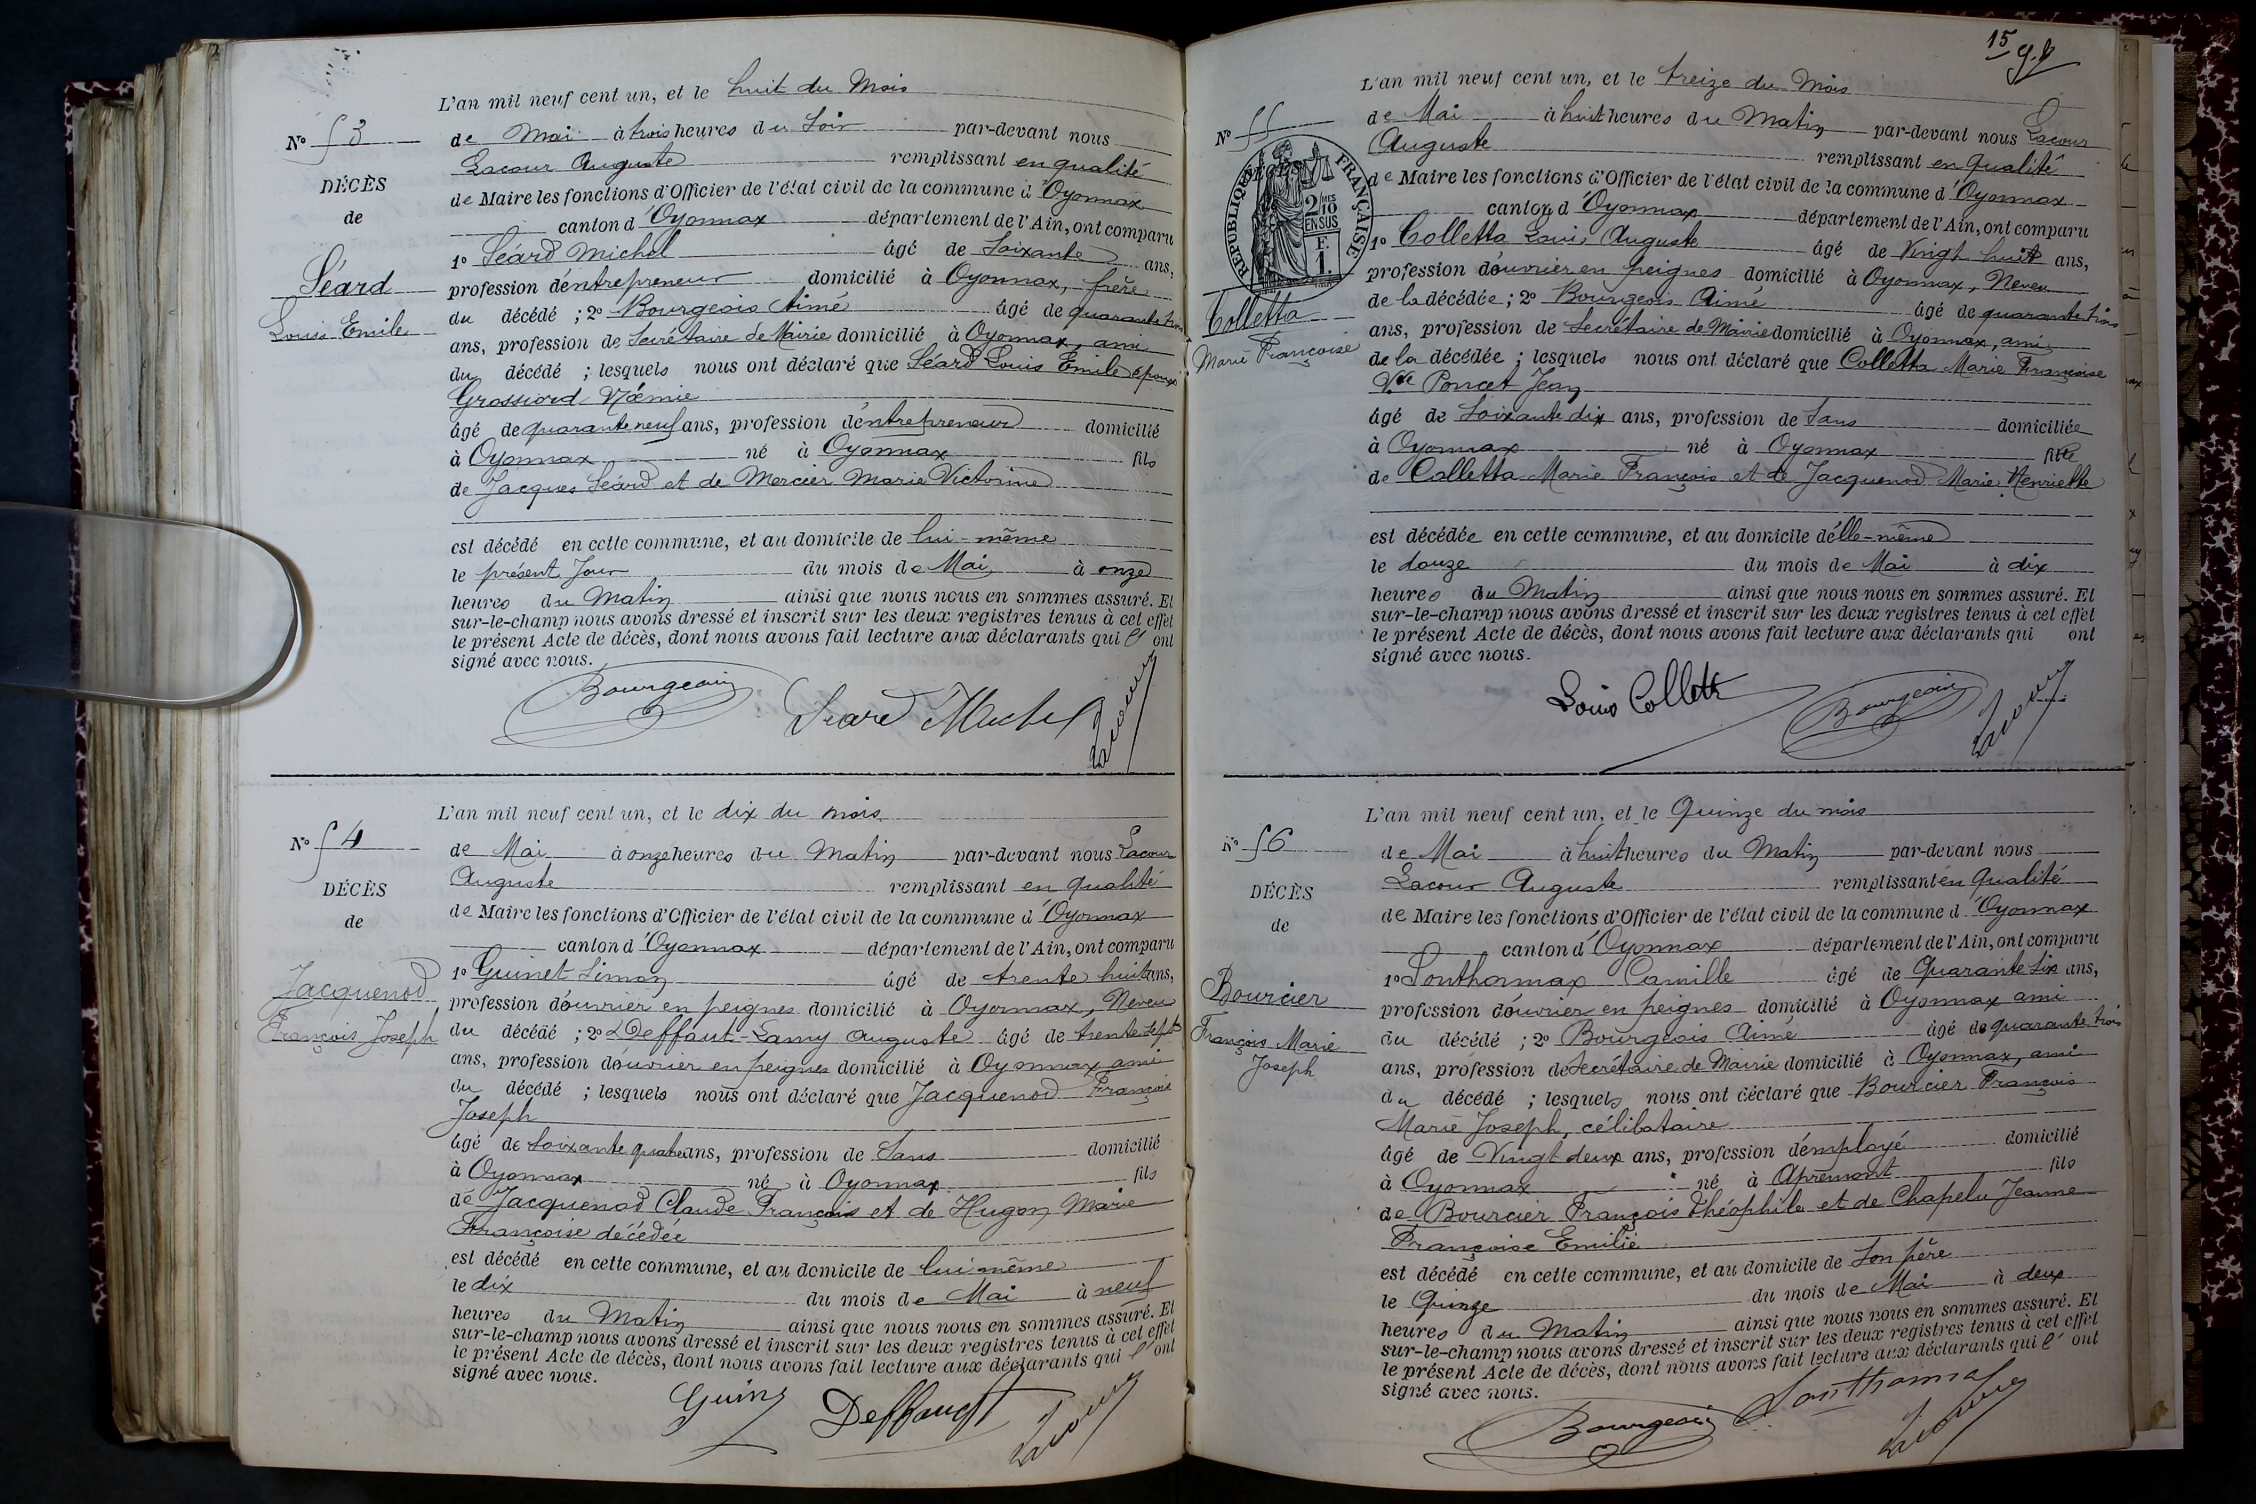 L'an mil neuf cent un, et le huit du Mois
N° 53
de Mai à trois heures du Soir par-devant nous
Lacour Auguste remplissant en qualité
DÉCÈS
de Maire les fonctions d'Officier de l'état civil de la commune d'Oyonnax
de
canton d'Oyonnax département de l'Ain, ont comparu
1° Séard Michel âgé de Soixante ans,
Séard
profession d'entrepreneur domicilié à Oyonnax, frère
Louis Emile
du décédé ; 2° Bourgeois Aimé âgé de quarante trois
ans, profession de Secrétaire de Mairie domicilié à Oyonnax, ami
du décédé ; lesquels nous ont déclaré que Séard Louis Emile époux
Grossiord Noémie
âgé de quarante neuf ans, profession d'entrepreneur domicilié
à Oyonnax né à Oyonnax fils
de Jacques Séard et de Mercier Marie Victorine
est décédé en cette commune, et au domicile de lui-même
le présent Jour du mois de Mai à onze
heures du Matin ainsi que nous nous en sommes assuré. Et
sur-le-champ nous avons dressé et inscrit sur les deux registres tenus à cet effet
le présent Acte de décès, dont nous avons fait lecture aux déclarants qui l'ont
signé avec nous.
Bourgeois Seard Michel Lacour
L'an mil neuf cent un, et le dix du mois
N° 54
de Mai à onze heures du Matin par-devant nous Lacour
Auguste remplissant en qualité
DÉCÈS
de Maire les fonctions d'Officier de l'état civil de la commune d'Oyonnax
de
canton d'Oyonnax département de l'Ain, ont comparu
1° Guinet Simon âgé de trente huit ans,
Jacquenod
profession d'ouvrier en peignes domicilié à Oyonnax, Neveu
François Joseph
du décédé ; 2° Deffaut-Lamy Auguste âgé de trente sept
ans, profession d'ouvrier en peignes domicilié à Oyonnax ami
du décédé ; lesquels nous ont déclaré que Jacquenod François
Joseph
âgé de Soixante quatre ans, profession de Sans domicilié
à Oyonnax né à Oyonnax fils
de Jacquenod Claude François et de Hugon Marie
Françoise décédée
est décédé en cette commune, et au domicile de lui même
le dix du mois de Mai à neuf
heures du Matin ainsi que nous nous en sommes assuré. Et
sur-le-champ nous avons dressé et inscrit sur les deux registres tenus à cet effet
le présent Acte de décès, dont nous avons fait lecture aux déclarants qui l'ont
signé avec nous.
Deffaugt Lacour
15
L'an mil neuf cent un, et le treize du Mois
N° 55
de Mai à huit heures du Matin par-devant nous Lacour
Auguste remplissant en qualité
RÉPUBLIQUE FRANÇAISE
2/10 EN SUS
F. 1.
de Maire les fonctions d'Officier de l'état civil de la commune d'Oyonnax
canton d'Oyonnax département de l'Ain, ont comparu
1° Colletta Louis Auguste âgé de Vingt huit ans,
profession d'ouvrier en peignes domicilié à Oyonnax, Neveu
Colletta
de la décédée ; 2° Bourgeois Aimé âgé de quarante trois
Marie Françoise
ans, profession de Secrétaire de Mairie domicilié à Oyonnax, ami
de la décédée ; lesquels nous ont déclaré que Colletta Marie Françoise
Vve Poncet Jean
âgé de Soixante dix ans, profession de Sans domiciliée
à Oyonnax né à Oyonnax fille
de Colletta Marie François et de Jacquenod Marie Henriette
est décédée en cette commune, et au domicile d'elle-même
le douze du mois de Mai à dix
heures du Matin ainsi que nous nous en sommes assuré. Et
sur-le-champ nous avons dressé et inscrit sur les deux registres tenus à cet effet
le présent Acte de décès, dont nous avons fait lecture aux déclarants qui ont
signé avec nous.
Louis Collett Bourgeois Lacour
L'an mil neuf cent un, et le Quinze du mois
N° 56
de Mai à huit heures du Matin par-devant nous
Lacour Auguste remplissant en Qualité
DÉCÈS
de Maire les fonctions d'Officier de l'état civil de la commune d'Oyonnax
de
canton d'Oyonnax département de l'Ain, ont comparu
1° Sonthonnax Camille âgé de Quarante six ans,
Bourcier
profession d'ouvrier en peignes domicilié à Oyonnax ami
François Marie
du décédé ; 2° Bourgeois Aimé âgé de quarante trois
Joseph
ans, profession de Secrétaire de Mairie domicilié à Oyonnax, ami
du décédé ; lesquels nous ont déclaré que Bourcier François
Marie Joseph, célibataire
âgé de Vingt deux ans, profession d'employé domicilié
à Oyonnax né à Apremont fils
de Bourcier François Théophile et de Chapelu Jeanne
Françoise Emilie
est décédé en cette commune, et au domicile de Son père
le Quinze du mois de Mai à deux
heures du Matin ainsi que nous nous en sommes assuré. Et
sur-le-champ nous avons dressé et inscrit sur les deux registres tenus à cet effet
le présent Acte de décès, dont nous avons fait lecture aux déclarants qui l'ont
signé avec nous.
Bourgeois Sonthonnax Lacour